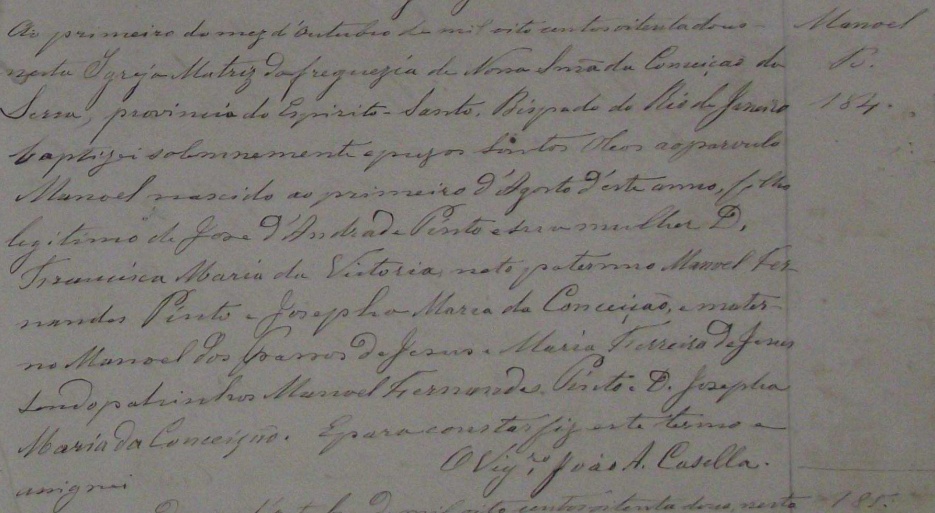 Ao primeiro do mez d'Outubro de mil oito centos oitenta dous
nesta Igreja Matriz da freguezia de Nossa Snrã da Conceiçaõ da
Serra, provincia do Espirito-Santo, Bispado do Rio de Janeiro
baptizei solemnemente e puz os Santos Oleos ao parvulo
Manoel nascido ao primeiro d'Agosto d'este anno, filho
legitimo de Jose d'Andrade Pinto e sua mulher D.
Francisca Maria da Victoria, neto paterno Manoel Fer-
nandes Pinto e Josepha Maria da Conceiçaõ, e mater-
no Manoel dos Passos de Jesus e Maria Ferreira de Jesus
sendo patrinhos Manoel Fernandes Pinto e D. Josepha
Maria da Conceiçaõ. E para constar fiz este termo e
assignei
O Vigr.º João A. Casella.
Manoel
184.
mil oito centos oitenta dous, nesta
185.